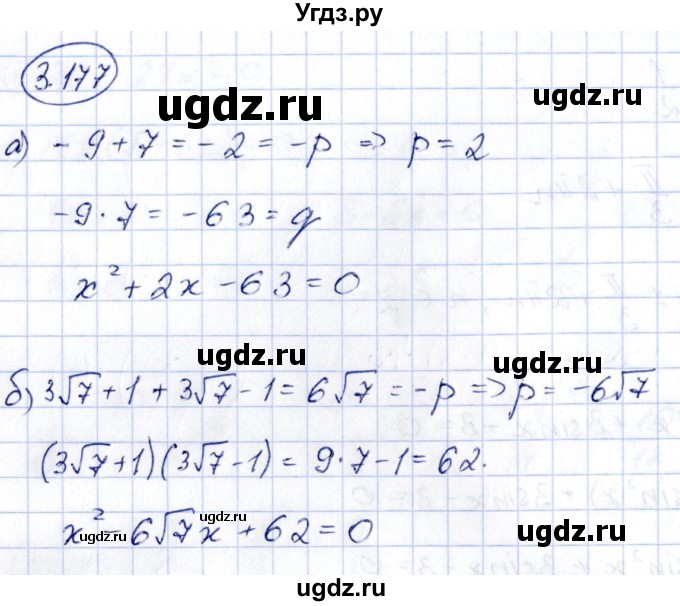 Угдз.ру
3.177
ugdz.ru ugdz.ru
а) - 9 + 7 = - 2 = -p => p = 2
-9 · 7 = - 63 = q
x² + 2x - 63 = 0
ugdz.ru ugdz.ru
б) 3√7 + 1 + 3√7 - 1 = 6√7 = -p => p = -6√7
(3√7+1)(3√7-1) = 9·7-1 = 62.
ugdz.ru
x² - 6√7x + 62 = 0
ugdz.ru ugdz.ru
ugdz.ru